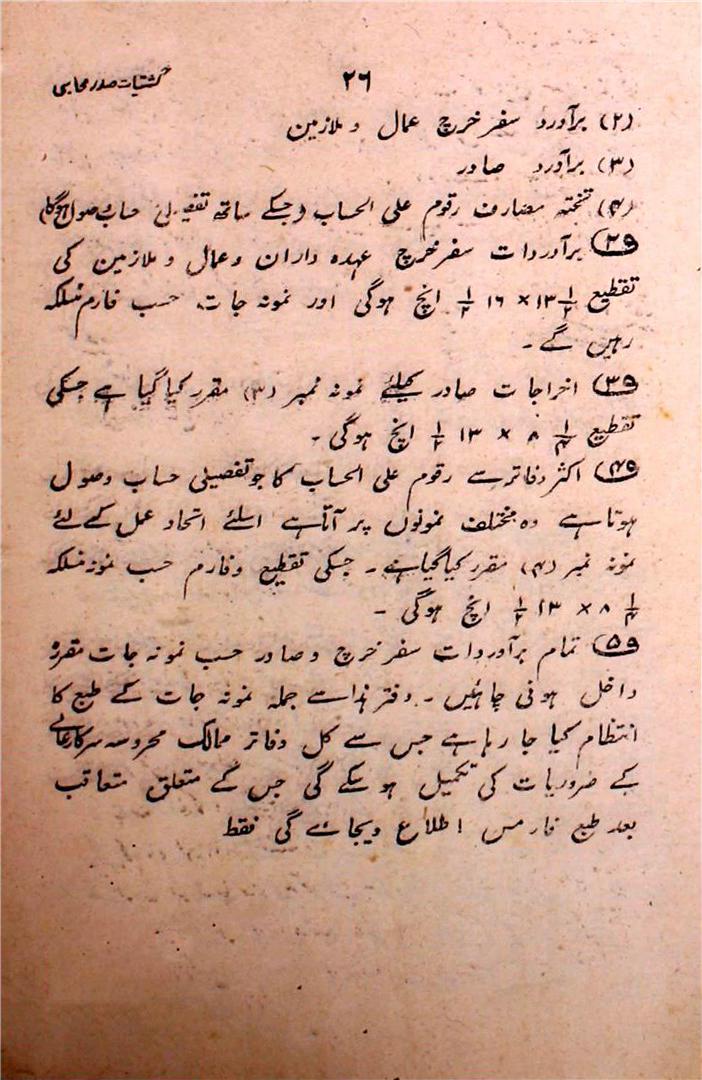 گشتیات صدر محاسبی
۲۶
(۲) برآورد سفر خرچ عمال و ملازمین
(۳) برآورد صادر
(۴) تختہ مصارف رقوم علی الحساب (جسکے ساتھ تفصیلی حساب وصول ہوگا)
ف۲ برآوردات سفر خرچ عہدہ داران و عمال و ملازمین کی
تقطیع ۱۳½ × ۱۶½ انچ ہوگی اور نمونہ جات حسب فارم منسلکہ
رہیں گے۔
ف۳ اخراجات صادر کیلئے نمونہ نمبر (۳) مقرر کیا گیا ہے جسکی
تقطیع ۸¼ × ۱۳½ انچ ہوگی۔
ف۴ اکثر دفاتر سے رقوم علی الحساب کا جو تفصیلی حساب وصول
ہوتا ہے وہ مختلف نمونوں پر آتا ہے اسلئے اتحاد عمل کے لئے
نمونہ نمبر (۴) مقرر کیا گیا ہے۔ جسکی تقطیع و فارم حسب نمونہ منسلکہ
۸¼ × ۱۳½ انچ ہوگی۔
ف۵ تمام برآوردات سفر خرچ و صادر حسب نمونہ جات مقررہ
داخل ہونی چاہئیں۔ دفتر ہذا سے جملہ نمونہ جات کے طبع کا
انتظام کیا جا رہا ہے جس سے کل دفاتر ممالک محروسہ سرکارعالی
کے ضروریات کی تکمیل ہو سکے گی جس کے متعلق متعاقب
بعد طبع فارمس اطلاع دیجائے گی فقط